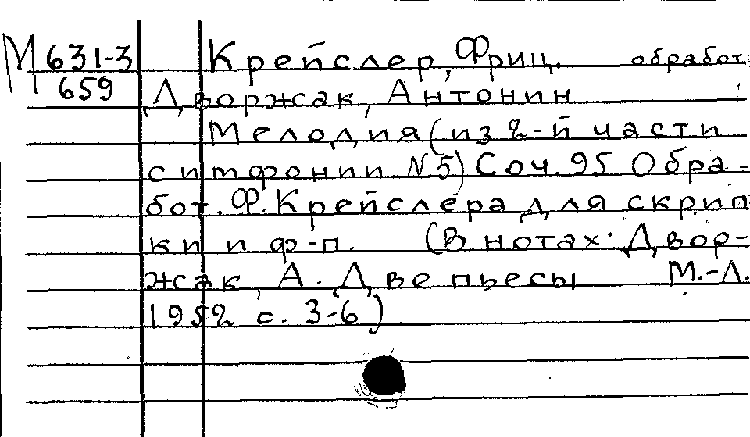 М 631-3 Крейслер, Фриц. обработ.
659 Дворжак, Антонин
Мелодия (из 2-й части
симфонии N5) Соч. 95 Обра-
бот. Ф. Крейслера для скрип
ки и ф-п. (В нотах: Двор-
жак, А. Две пьесы М.-Л.
1952 с. 3-6)